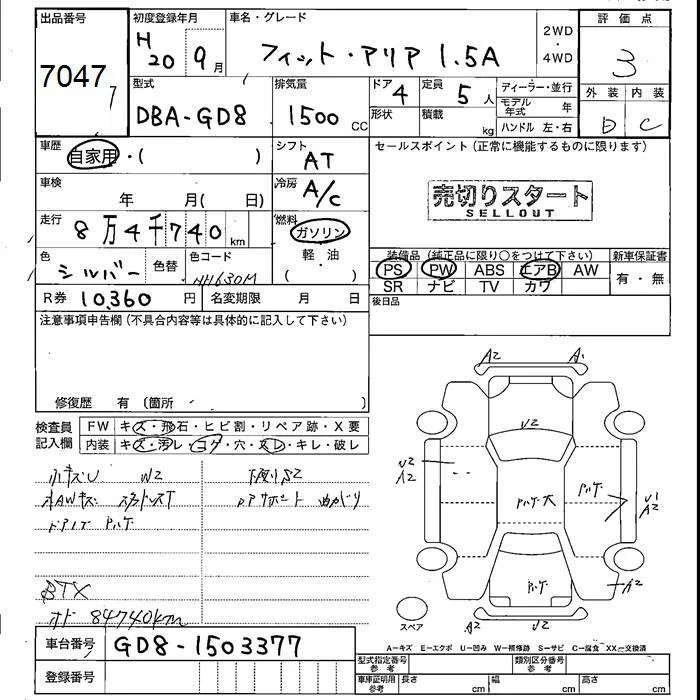 出品番号 初度登録年月 車名・グレード 評価点
7047 H20 9月 フィット・アリア 1.5A 2WD・4WD 3
7
型式 排気量 ドア 定員 ディーラー・並行 外装 内装
DBA-GD8 1500 CC 4 5人 モデル年式 年
形状 積載 kg ハンドル 左・右 B C
車歴 シフト セールスポイント (正常に機能するものに限ります)
自家用・( ) AT
車検 冷房 売切りスタート
年 月( 日) A/C SELLOUT
走行 燃料
8万4千740km ガソリン
色 色替 色コード 軽・油 装備品 (純正品に限り○をつけて下さい) 新車保証書
シルバー NH630M ( ) PS PW ABS エアB AW 有・無
SR ナビ TV カワ
R券 10,360円 名変期限 月 日 後日品
注意事項申告欄 (不具合内容等は具体的に記入して下さい)
修復歴 有 〔箇所 〕
検査員 FW キズ・飛石・ヒビ割・リペア跡・X要
記入欄 内装 キズ・汚レ・コゲ・穴・スレ・キレ・破レ
小キズU W2 下廻りS2
ドア
BTX
オド 84740km
車台番号 GD8-1503377
登録番号
A2 A1
U2
U2
A2
U1
A2
A2
A2 U2
スペア
A-キズ E-エクボ U-凹み W-補修跡 S-サビ C-腐食 XX-交換済
型式指定番号 参考 類別区分番号 参考
車庫証明用 参考 長さ cm 幅 cm 高さ cm